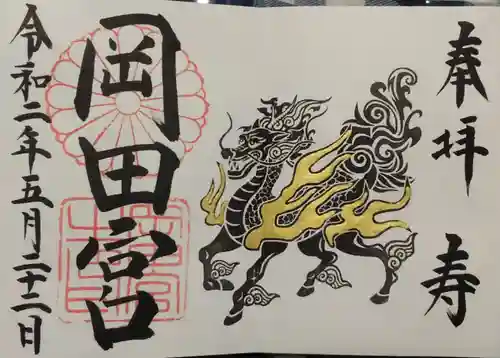 奉拝 寿
岡田宮
令和二年五月二十二日